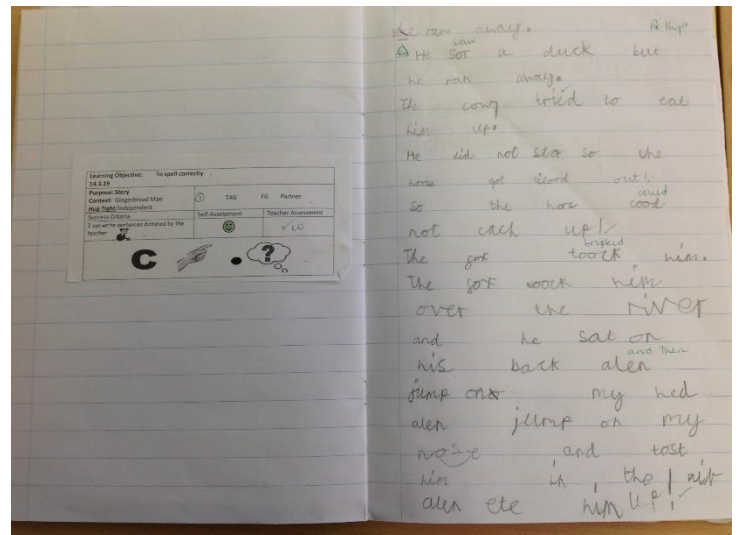 Learning Objective: To spell correctly
14.3.19
Purpose: Story
Context: Gingerbread Man
Hug Tight/Independent
TAG FG Partner
Success Criteria
Self-Assessment
Teacher Assessment
I can write sentences dictated by the
teacher
✓LO
C . ?
He ran away.
saw
He sor a duck but
he ran away.
The cowy tried to eat
him up.
He did not stor so the
horse got out!
could
So the hors cood
not cach up!
tricked
The gox toock him.
The gox woock him
over the river
and he sat on
and then
his back alen
jump on my hed
alen jump on my
nose and tost
him in the air
alen ete him up!